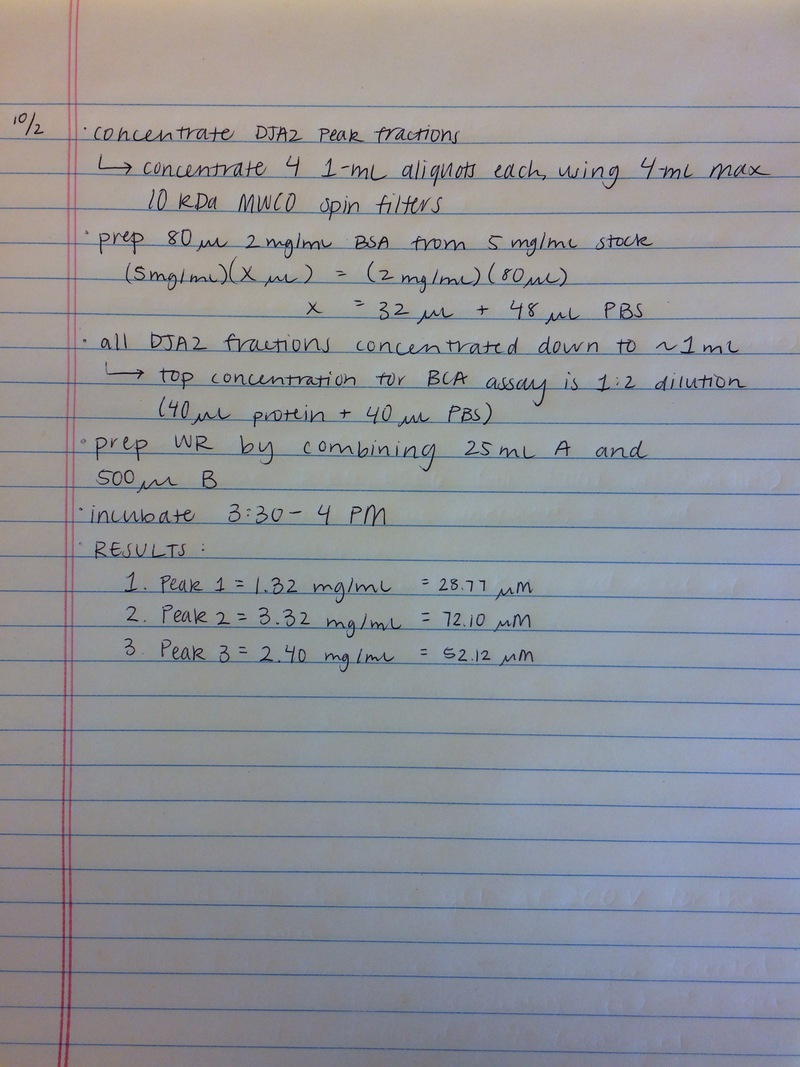 10/2 · concentrate DJA2 peak fractions
↳ concentrate 4 1-mL aliquots each, using 4-mL max
10 kDa MWCO spin filters
· prep 80 µL 2 mg/mL BSA from 5 mg/mL stock
(5mg/mL)(x µL) = (2 mg/mL)(80µL)
x = 32 µL + 48 µL PBS
· all DJA2 fractions concentrated down to ~1mL
↳ top concentration for BCA assay is 1:2 dilution
(40µL protein + 40 µL PBS)
· prep WR by combining 25mL A and
500µL B
· incubate 3:30 - 4 PM
· RESULTS :
1. Peak 1 = 1.32 mg/mL = 28.77 µM
2. Peak 2 = 3.32 mg/mL = 72.10 µM
3. Peak 3 = 2.40 mg/mL = 52.12 µM